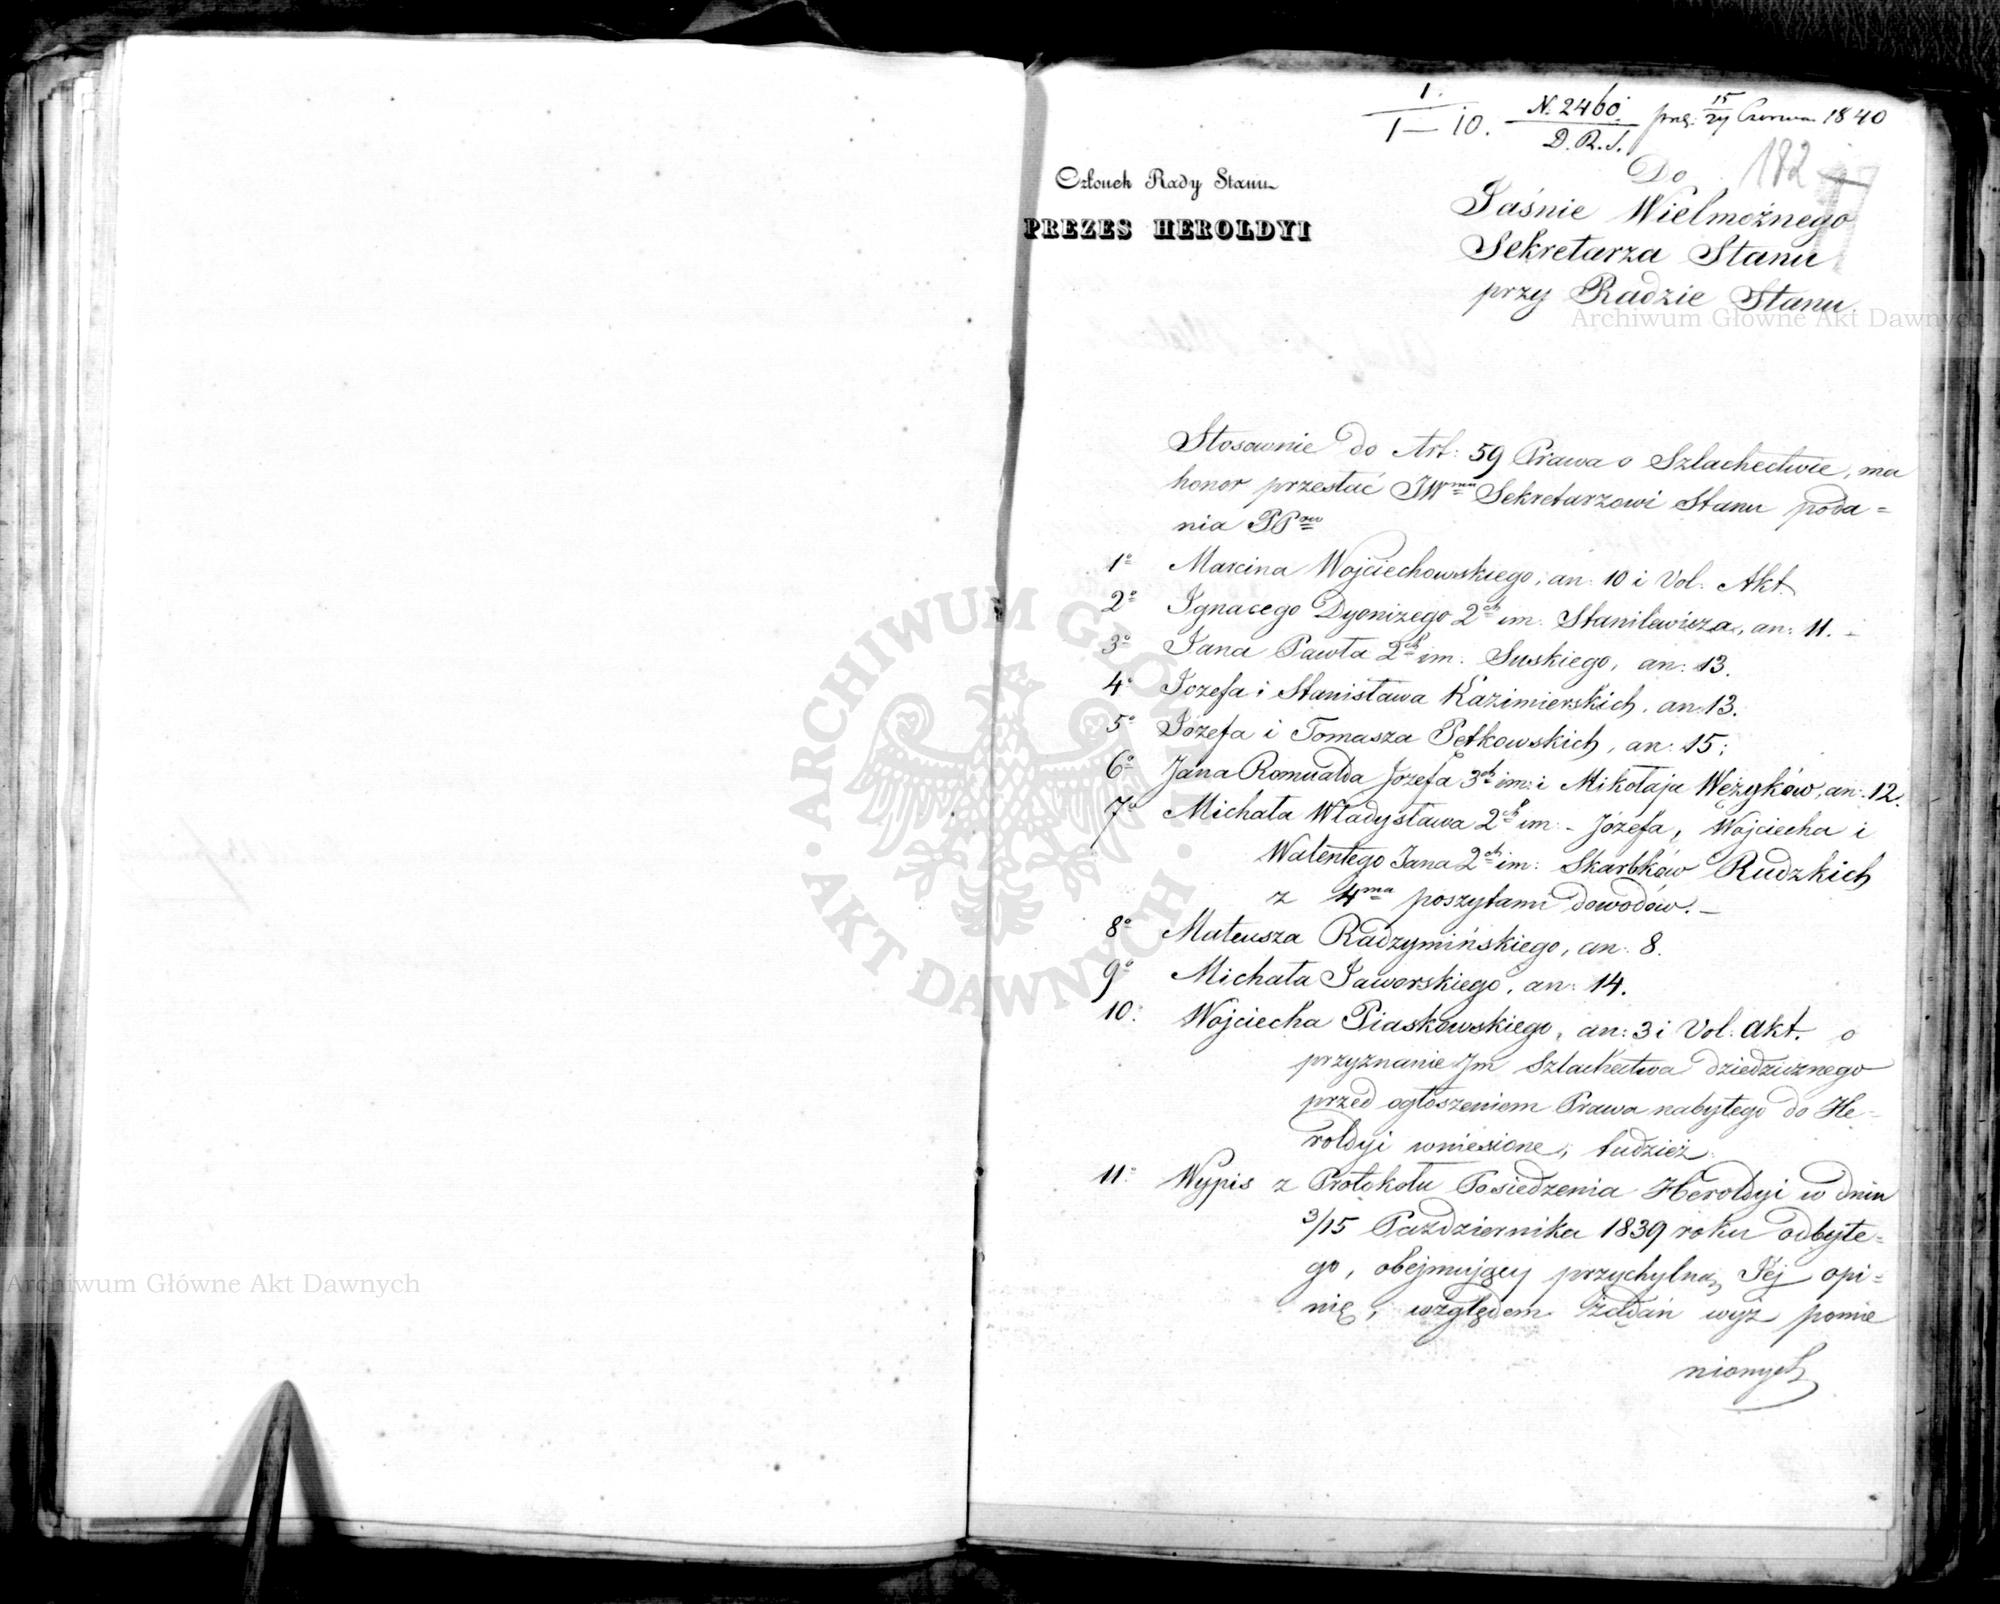 1.
1 — 10.
N. 2460.
D. R. S.
15
27 Czerwca 1840
182
Członek Rady Stanu
PREZES HEROLDYI
Do
Jaśnie Wielmożnego
Sekretarza Stanu
przy Radzie Stanu.
Archiwum Główne Akt Dawnych
Stosownie do Art: 59 Prawa o Szlachectwie, ma
honor przesłać JWmu Sekretarzowi Stanu poda=
nia PPow
1o Marcina Wojciechowskiego, an: 10 i Vol: Akt.
2o Ignacego Dyonizego 2ch im: Stanilewicza, an: 11. -
3o Jana Pawła 2ch im: Suskiego, an: 13.
4o Jozefa i Stanisława Kazimierskich, an: 13.
5o Józefa i Tomasza Pętkowskich, an: 15;
6o Jana Romualda Jozefa 3ch im: i Mikołaja Wężyków, an: 12.
7o Michała Władysława 2ch im: - Józefa, Wojciecha i
Walentego Jana 2ch im: Skarbków Rudzkich
z 4ma poszytami dowodów. —
8o Mateusza Radzymińskiego, an: 8.
9o Michała Jaworskiego, an: 14.
10: Wojciecha Piaskowskiego, an: 3 i Vol: Akt. o
przyznanie Im Szlachectwa dziedzicznego
przed ogłoszeniem Prawa nabytego do He=
roldyi wniesione; tudzież
11: Wypis z Protokołu Posiedzenia Heroldyi w dniu
3/15 Października 1839 roku odbyte=
go, obejmujący przychylną Jej opi=
nię, względem żądań wyż pomie
nionych
ARCHIWUM GŁÓWNE · AKT DAWNYCH ·
Archiwum Główne Akt Dawnych